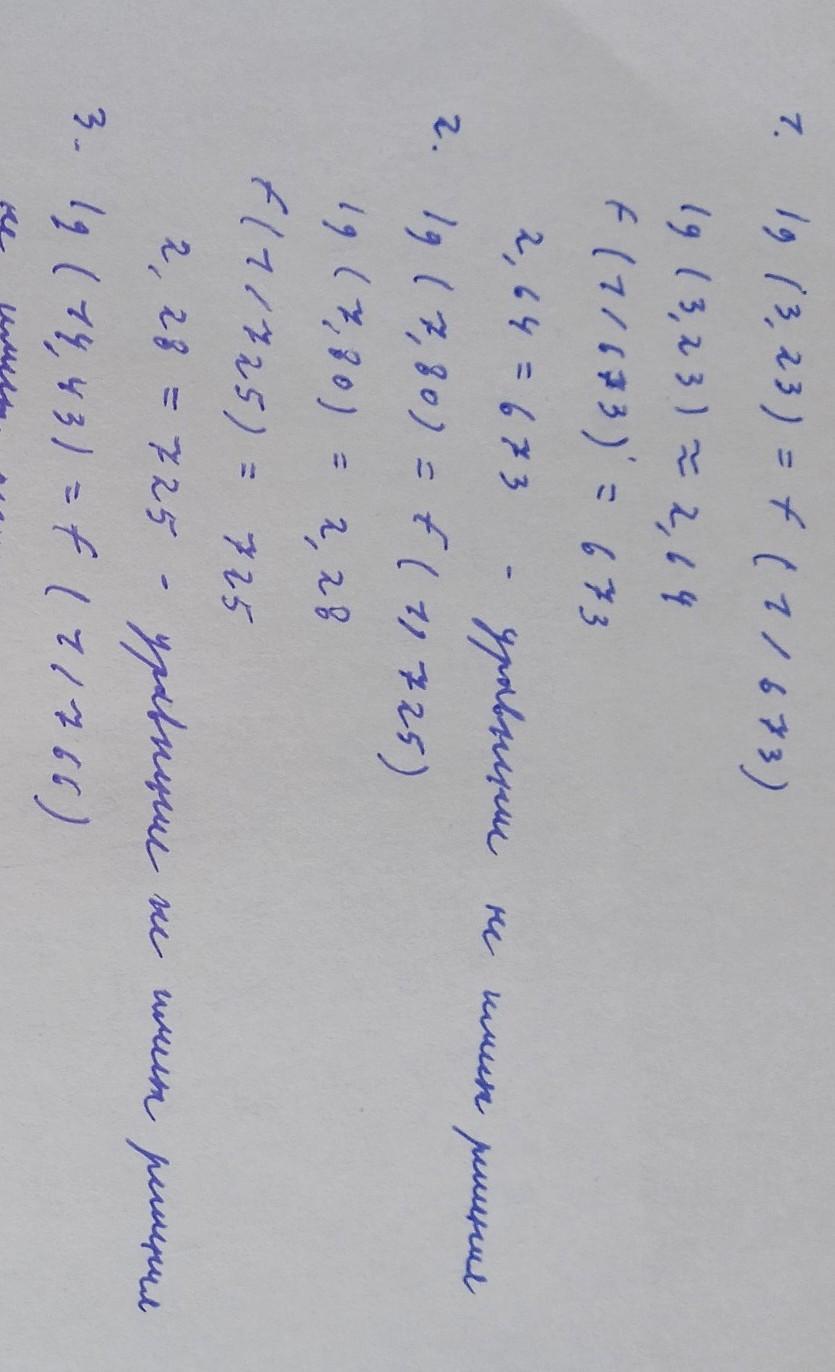 1. lg (3,23) = f (1/673)
lg (3,23) ≈ 2,64
f (1/673) = 673
2,64 = 673 - уравнение не имеет решения
2. lg (7,80) = f (1/725)
lg (7,80) = 2,28
f (1/725) = 725
2,28 = 725 - уравнение не имеет решения
3. lg (14,43) = f (1/766)
не имеет